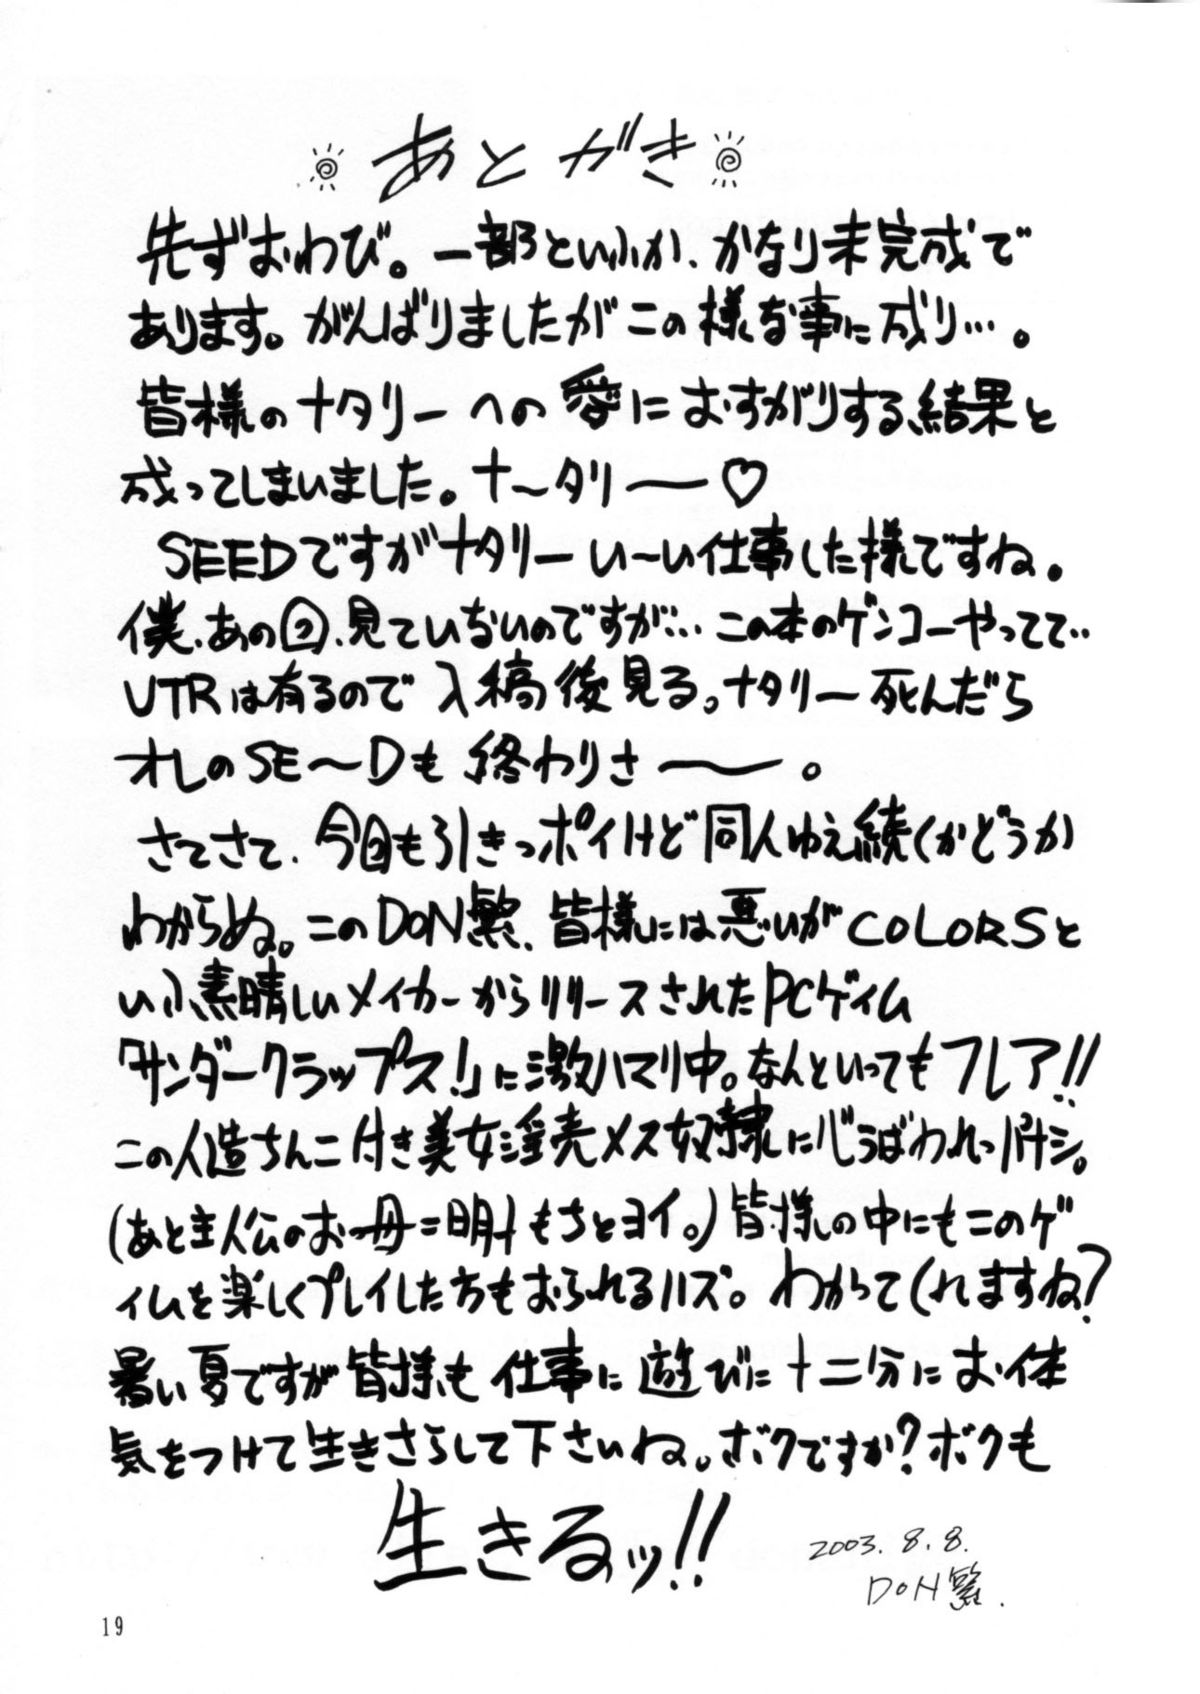 あとがき
先ずおわび。一部といふか、かなり未完成で
あります。がんばりましたがこの様な事に成り…。
皆様のナタリーへの愛におすがりする結果と
成ってしまいました。ナ〜タリ――♡
SEEDですがナタリーい〜い仕事した様ですね。
僕、あの回、見ていないのですが… この本のゲンコーやってて‥
VTRは有るので入稿後見る。ナタリー死んだら
オレのSE〜Dも終わりさ――。
さてさて、今回も引きっポイけど同人ゆえ続くかどうか
わからぬ。このDON繁、皆様には悪いがCOLORSと
いふ素晴しいメイカーからリリースされたPCゲイム
「サンダークラップス!」に激ハマリ中。なんといってもフレア!!
この人造ちんこ付き美女淫売メス奴隷に心うばわれっパナシ。
(あと主人公のお母ニ明もちとヨイ。)皆様の中にもこのゲ
イムを楽しくプレイした方もおられるハズ。わかってくれますね?
暑い夏ですが皆様も仕事に遊びに十二分にお体
気をつけて生きさらして下さいね。ボクですか?ボクも
生きるッ!!
2003.8.8.
DON繁.
19